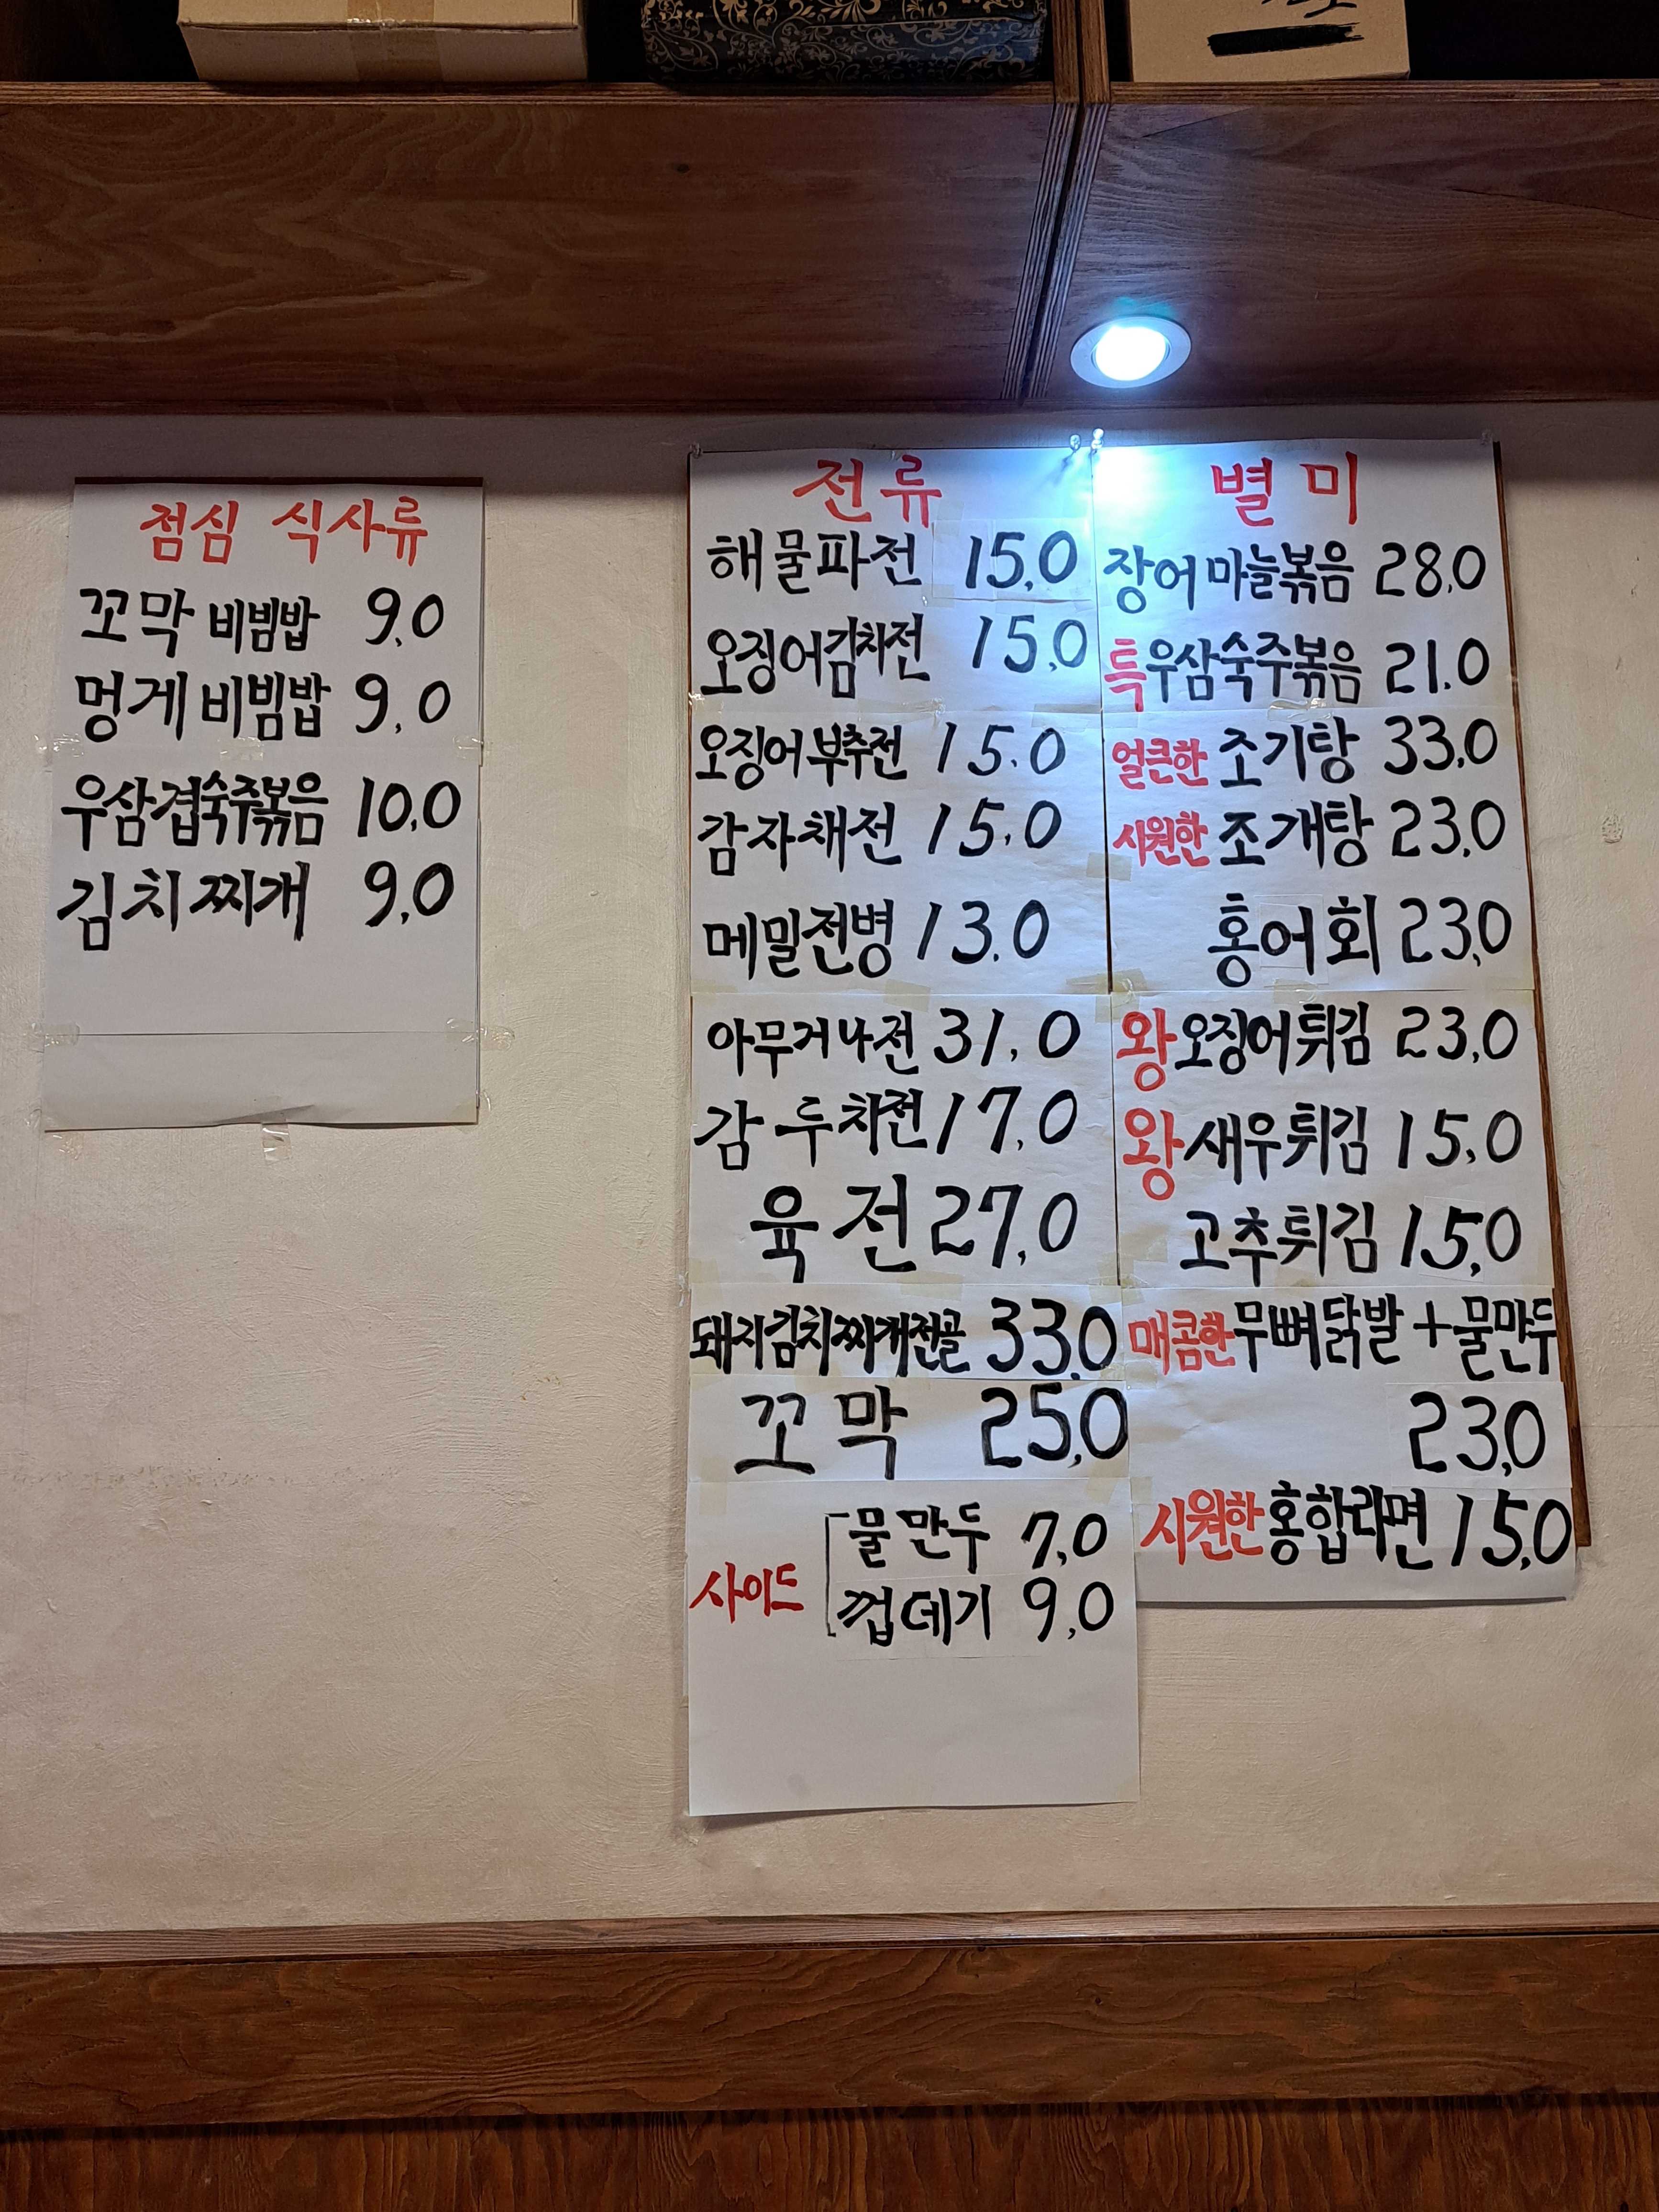 점심 식사류
꼬막 비빔밥 9,0
멍게 비빔밥 9,0
우삼겹숙주볶음 10,0
김치찌개 9,0
전류
해물파전 15,0
오징어김치전 15,0
오징어부추전 15.0
감자채전 15,0
메밀전병 13.0
아무거나전 31,0
감두치전 17,0
육전 27,0
돼지김치찌개전골 33,0
꼬막 25,0
사이드
물만두 7,0
껍데기 9,0
별미
장어마늘볶음 28,0
특우삼숙주볶음 21.0
얼큰한 조기탕 33,0
시원한 조개탕 23,0
홍어회 23,0
왕오징어튀김 23,0
왕새우튀김 15,0
고추튀김 15,0
매콤한무뼈닭발+물만두
23,0
시원한홍합라면 15,0